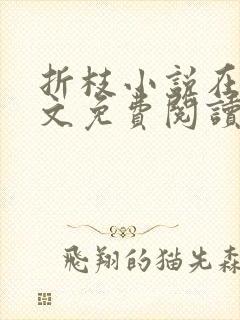 折枝小说在
文免費閱讀
飛翔的猫先森